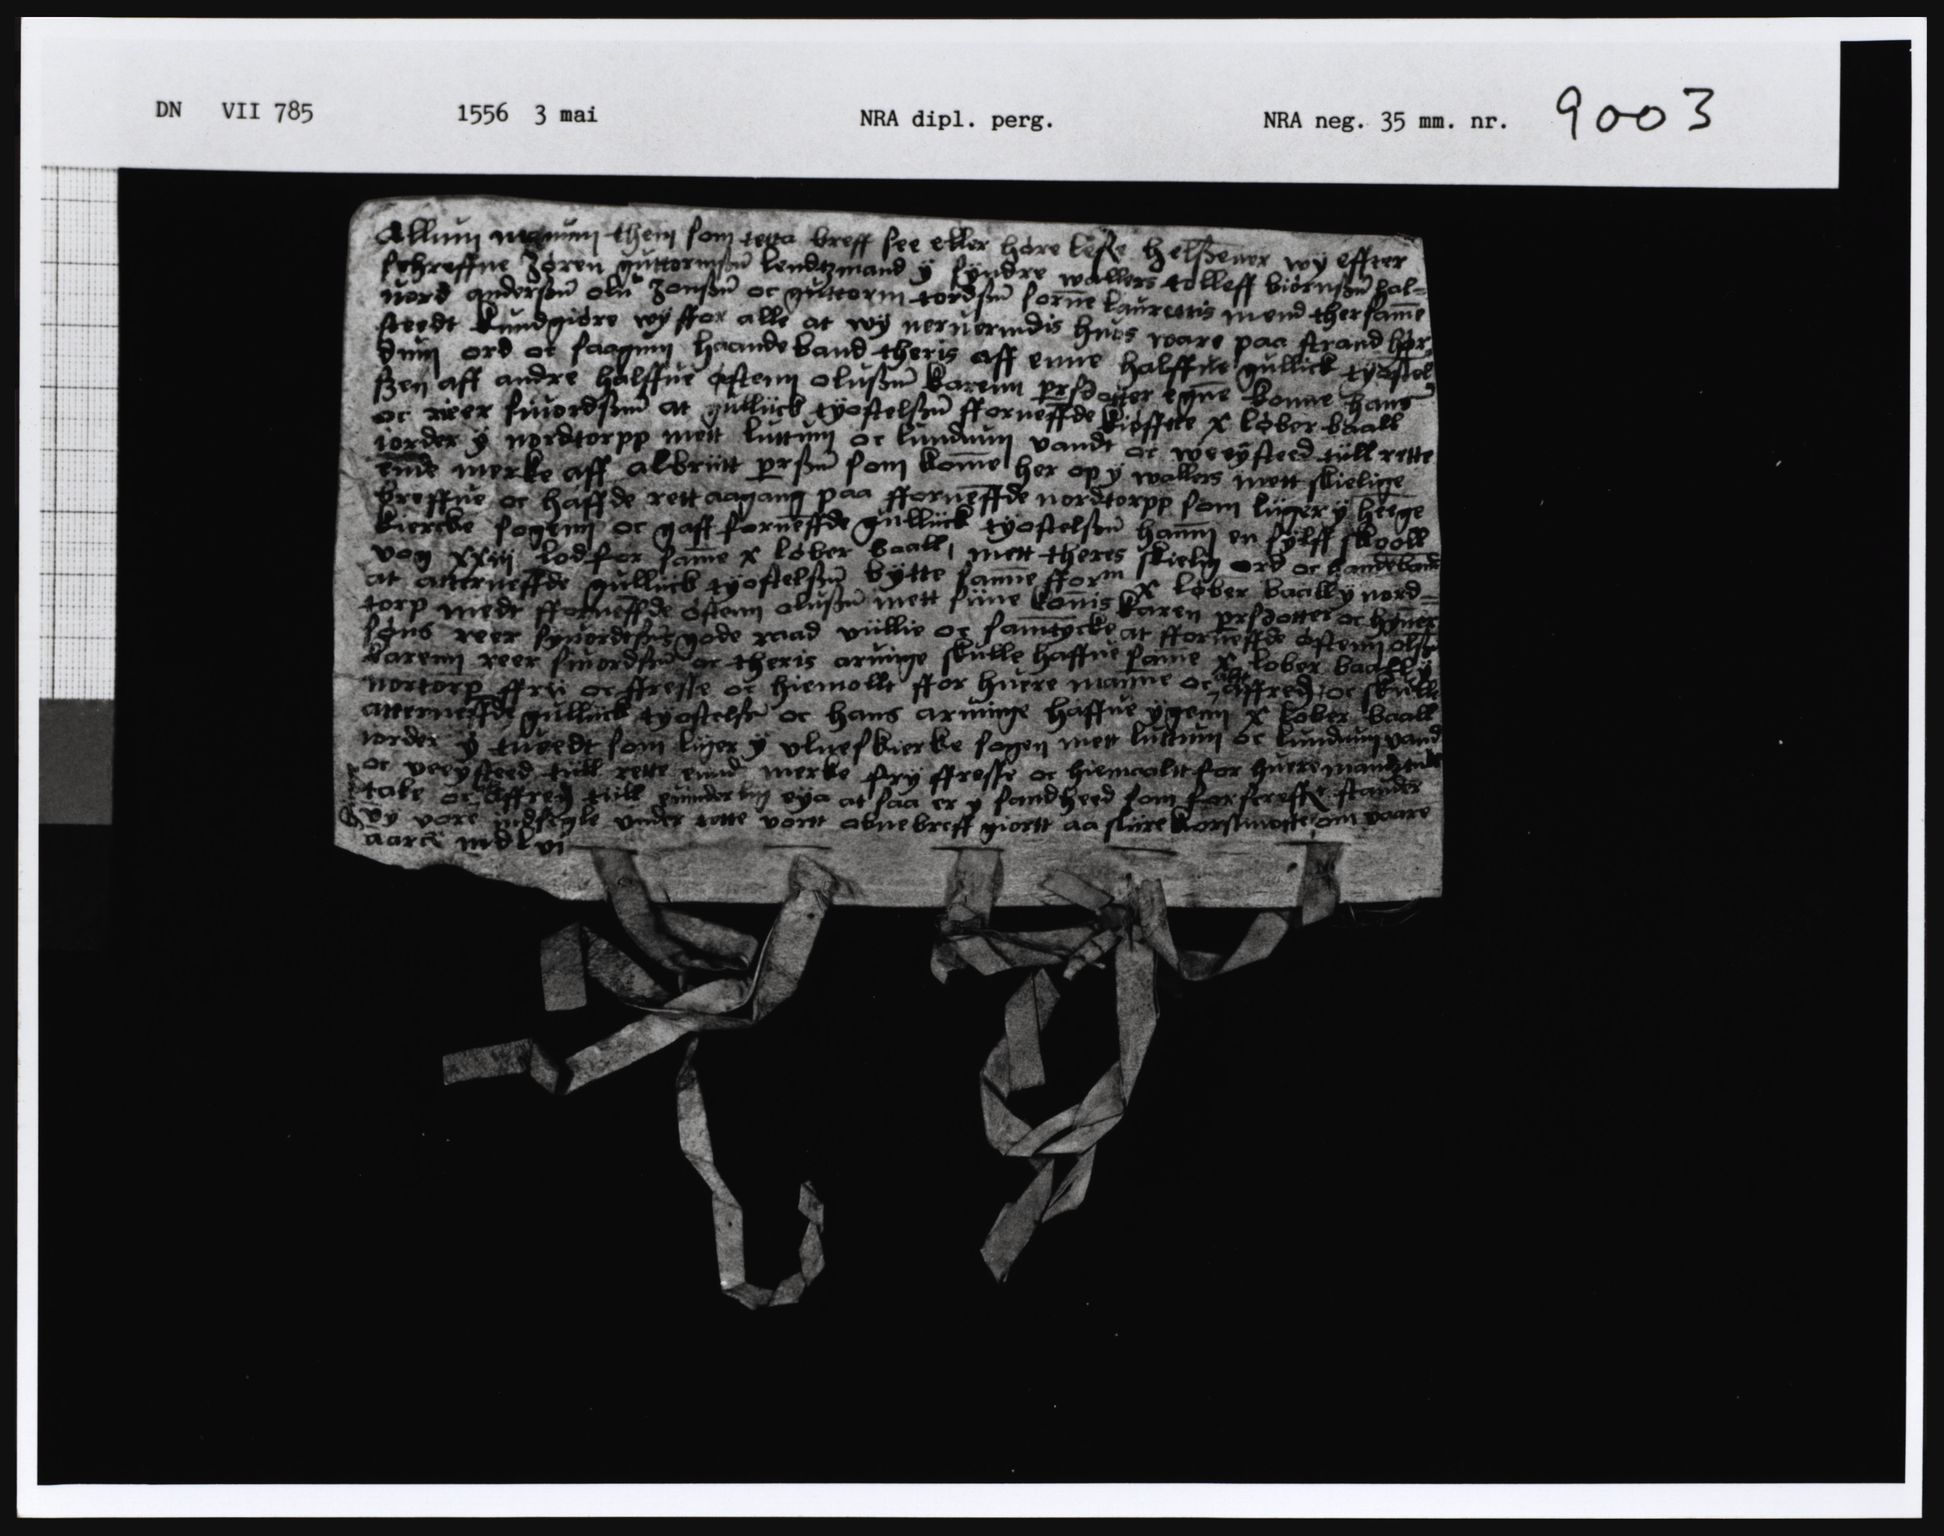 DN VII 785 1556 3 mai NRA dipl. perg. NRA neg. 35 mm. nr. 9003
Allum monnum them som tetta breff see eller høre lesse helssener wy effter
schreffne Joren guttormssøn lendzmand y syndre wallers tolleff biørnssøn hal=
uord anderssøn olu Jonssøn oc guttorm tordssøn sorne laurettis mend ther same
steedt kundgiøre wy ffor alle at wy neruerindis huos ware paa strand hør
dum ord oc saagum haande band theris aff enne halffue gullick tyostel
ssen aff andre halffue østenn olussøn karenn persdotter egne konne hans
oc reer siuordssøn at gullick tyostelssøn fforneffde kiøffte x løber baall
iorder y nordtorpp mett luttum oc lundum vandt oc weeysteed till rette
ende merke aff albritt perssøn som kome her op y wallers mett skielige
breffue oc haffde rett aagang paa fforneffde nordtorpp som liiger y hegge
kiercke sogenn oc gaff forneffde gullick tyostelssøn hanm en sylff skooll
vog xxiij lod for same x løber baall mett theres skielig ord oc handeband
at atterneffde gullick tyostelssøn bytte same fforn x løber baall y nord=
torp medt fforneffde østenn olussøn mett siine konis karen persdotter oc
søns reer syuordtssøns gode raad villie oc samtycke at fforneffde østenn olss
karenn reer siuordssøn oc theris aruinge skulle haffue same x løber baall y
nortorp ffrii oc ffrelse oc hiemollt ffor huere manne oc alt affred oc skulle
atterneffde gullick tyostelss oc hans aruinge haffue ygenn x løber baall
iorder y tueedt som liger y vlnes kierke sogen mett luttum oc lundum vand
oc veeysteed till rette ennd merke fry ffrelse oc hiemoltt for huere mandz till
take oc affred till euinderlig eya at saa er y sandheed som forscreffit stander
vy vore indsegle vnder tette vortt obne breff giortt aa korsmøsse om vaare
aarit mdlvi